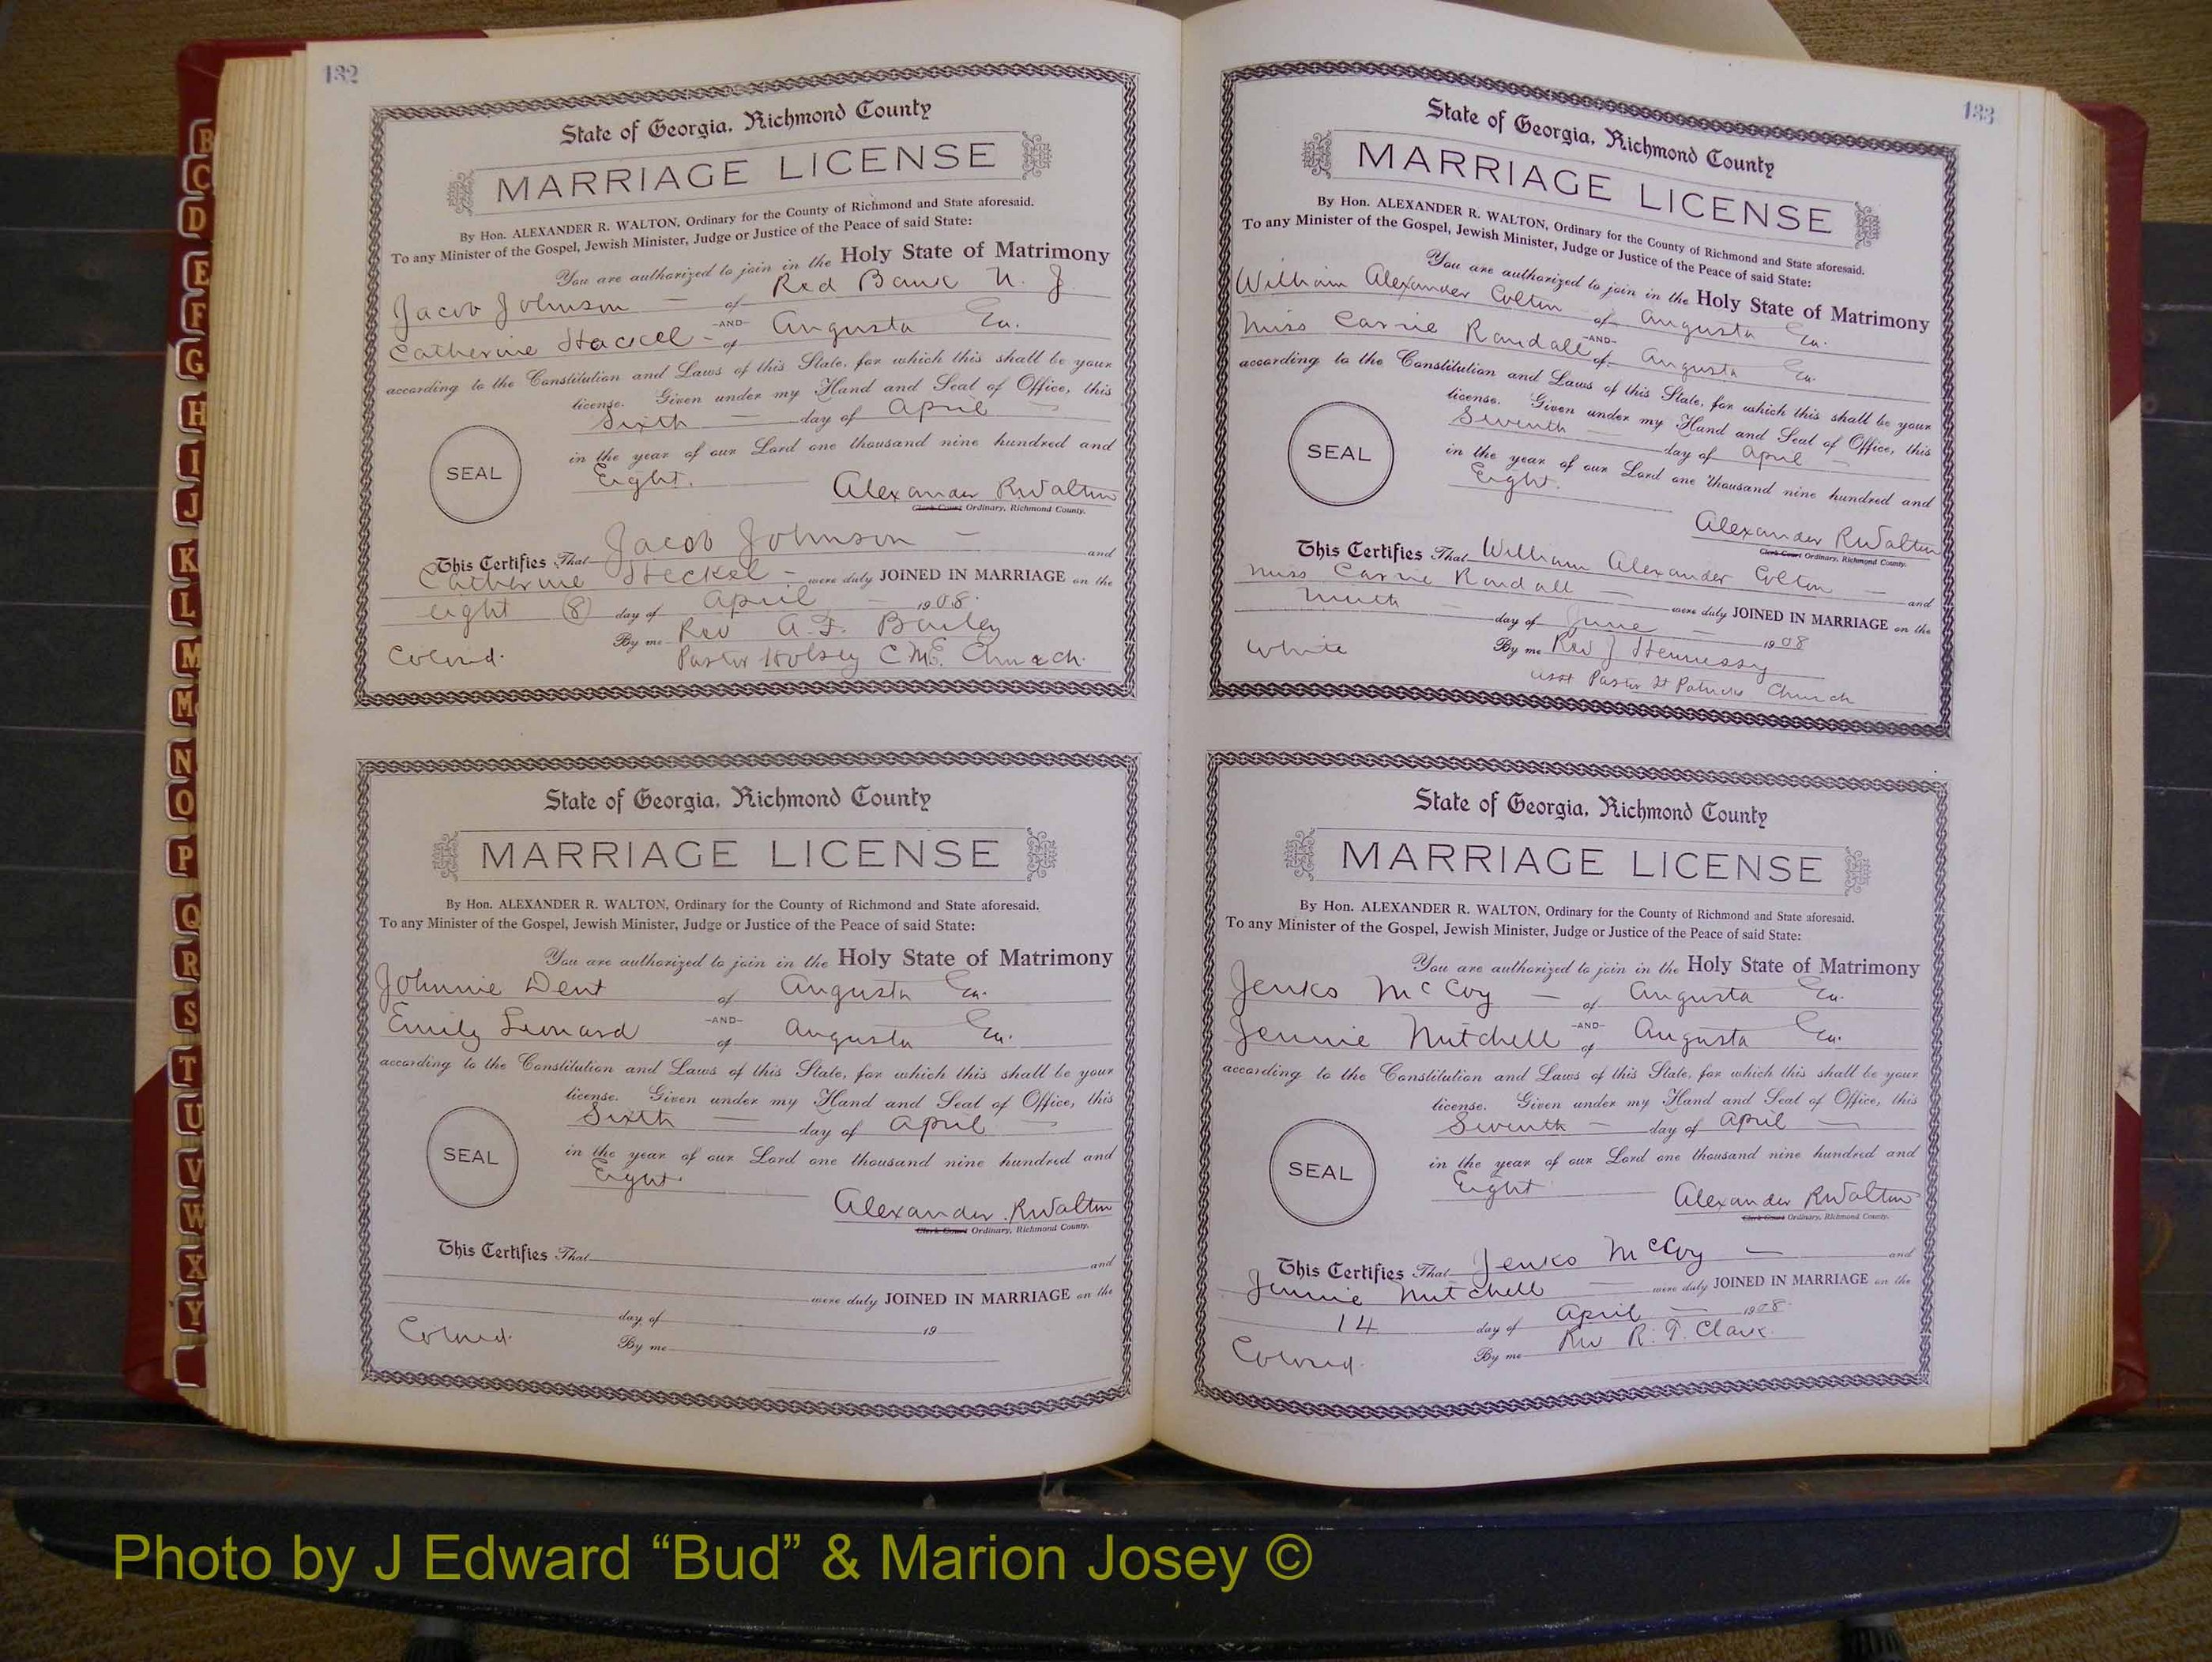 132
State of Georgia, Richmond County
MARRIAGE LICENSE
By Hon. ALEXANDER R. WALTON, Ordinary for the County of Richmond and State aforesaid.
To any Minister of the Gospel, Jewish Minister, Judge or Justice of the Peace of said State:
You are authorized to join in the Holy State of Matrimony
Jacob Johnson — of Red Bank N. J
—AND—
Catherine - of Augusta Ga.
according to the Constitution and Laws of this State, for which this shall be your
license. Given under my Hand and Seal of Office, this
Sixth — day of April
in the year of our Lord one thousand nine hundred and
Eight.
SEAL
Alexander R Walton
Clerk Court Ordinary, Richmond County.
This Certifies That Jacob Johnson — and
Catherine Steckel - were duly JOINED IN MARRIAGE on the
eight (8) day of April — 1908.
By me Rev A. F. Bailey
Colored. Pastor Holsey C M E. Church.
State of Georgia, Richmond County
MARRIAGE LICENSE
By Hon. ALEXANDER R. WALTON, Ordinary for the County of Richmond and State aforesaid.
To any Minister of the Gospel, Jewish Minister, Judge or Justice of the Peace of said State:
You are authorized to join in the Holy State of Matrimony
Johnnie Dent of Augusta Ga.
—AND—
Emily Leonard of Augusta Ga.
according to the Constitution and Laws of this State, for which this shall be your
license. Given under my Hand and Seal of Office, this
Sixth — day of April
in the year of our Lord one thousand nine hundred and
Eight.
SEAL
Alexander R Walton
Clerk Court Ordinary, Richmond County.
This Certifies That and
were duly JOINED IN MARRIAGE on the
day of 19
Colored. By me
133
State of Georgia, Richmond County
MARRIAGE LICENSE
By Hon. ALEXANDER R. WALTON, Ordinary for the County of Richmond and State aforesaid.
To any Minister of the Gospel, Jewish Minister, Judge or Justice of the Peace of said State:
You are authorized to join in the Holy State of Matrimony
William Alexander Colton of Augusta Ga.
—AND—
Miss Carrie Randall of Augusta Ga.
according to the Constitution and Laws of this State, for which this shall be your
license. Given under my Hand and Seal of Office, this
Seventh — day of April —
in the year of our Lord one thousand nine hundred and
Eight.
SEAL
Alexander R Walton
Clerk Court Ordinary, Richmond County.
This Certifies That William Alexander Colton — and
Miss Carrie Randall — were duly JOINED IN MARRIAGE on the
Ninth — day of June — 1908
White By me Rev J Hennessy
asst Pastor St Patricks Church
State of Georgia, Richmond County
MARRIAGE LICENSE
By Hon. ALEXANDER R. WALTON, Ordinary for the County of Richmond and State aforesaid.
To any Minister of the Gospel, Jewish Minister, Judge or Justice of the Peace of said State:
You are authorized to join in the Holy State of Matrimony
Jenks McCoy — of Augusta Ga.
—AND—
Jennie Mitchell of Augusta Ga.
according to the Constitution and Laws of this State, for which this shall be your
license. Given under my Hand and Seal of Office, this
Seventh — day of April —
in the year of our Lord one thousand nine hundred and
Eight
SEAL
Alexander R Walton
Clerk Court Ordinary, Richmond County.
This Certifies That Jenks McCoy — and
Jennie Mitchell — were duly JOINED IN MARRIAGE on the
14 day of April — 1908.
Colored. By me Rev R. T. Clark.
B
C
D
E
F
G
H
I
J
K
L
M
Mc
N
O
P
Q
R
S
T
U
V
W
X
Y
Photo by J Edward “Bud” & Marion Josey ©